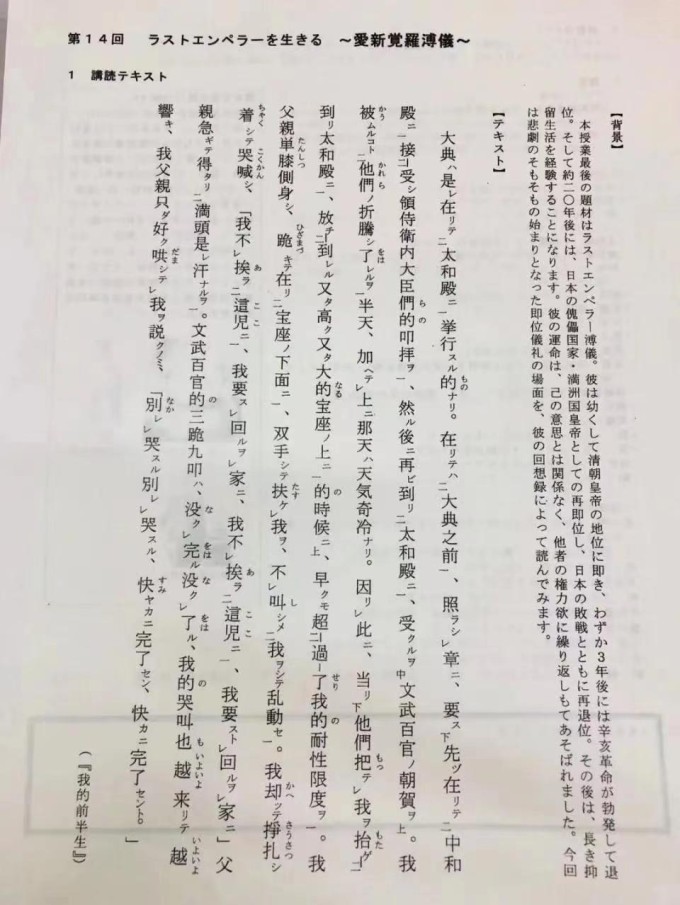 第１４回　ラストエンペラーを生きる　～愛新覚羅溥儀～
１　講読テキスト
【背景】
本授業最後の題材はラストエンペラー溥儀。彼は幼くして清朝皇帝の地位に即き、わずか３年後には辛亥革命が勃発して退
位。そして約二〇年後には、日本の傀儡国家・満洲国皇帝としての再即位し、日本の敗戦とともに再退位。その後は、長き抑
留生活を経験することになります。彼の運命は、己の意思とは関係なく、他者の権力欲に繰り返しもてあそばれました。今回
は悲劇のそもそもの始まりとなった即位儀礼の場面を、彼の回想録によって読んでみます。
【テキスト】
大典ハ是レ在リテ二太和殿ニ一挙行スル的ナリ。在リテハ二大典之前一、照ラシレ章ニ、要ス下先ヅ在リテ二中和
殿ニ一接二受シ領侍衛内大臣們的叩拝ヲ一、然ル後ニ再ビ到リ二太和殿ニ一、受クルヲ中文武百官ノ朝賀ヲ上。我
被ムルコト二他們ノ折騰シ了レルヲ一半天、加ヘテレ上ニ那天ハ天気奇冷ナリ。因リレ此ニ、当リ下他們把テレ我ヲ抬ゲ二
到リ太和殿ニ一、放チ二到レル又タ高ク又タ大的宝座ノ上ニ一的時候ニ上、早クモ超二過シ了我的耐性限度ヲ一。我
父親単膝側身シ、跪キテ在リ二宝座ノ下面ニ一、双手シテ扶ケレ我ヲ、不レ叫シメ二我ヲシテ乱動セ一。我却ツテ掙扎シ
着シテ哭喊シ、「我不レ挨ラ二這児ニ一、我要スレ回ルヲレ家ニ、我不レ挨ラ二這児ニ一、我要ストレ回ルヲレ家ニ」父
親急ギテ得タリ二満頭是レ汗ナルヲ一。文武百官的三跪九叩ハ、没クレ完ル没クレ了ル、我的哭叫也越来リテ越
響キ、我父親只ダ好ク哄シテレ我ヲ説クノミ、「別レ哭スル別レ哭スル、快ヤカニ完了セン、快カニ完了セント。」
（『我的前半生』）